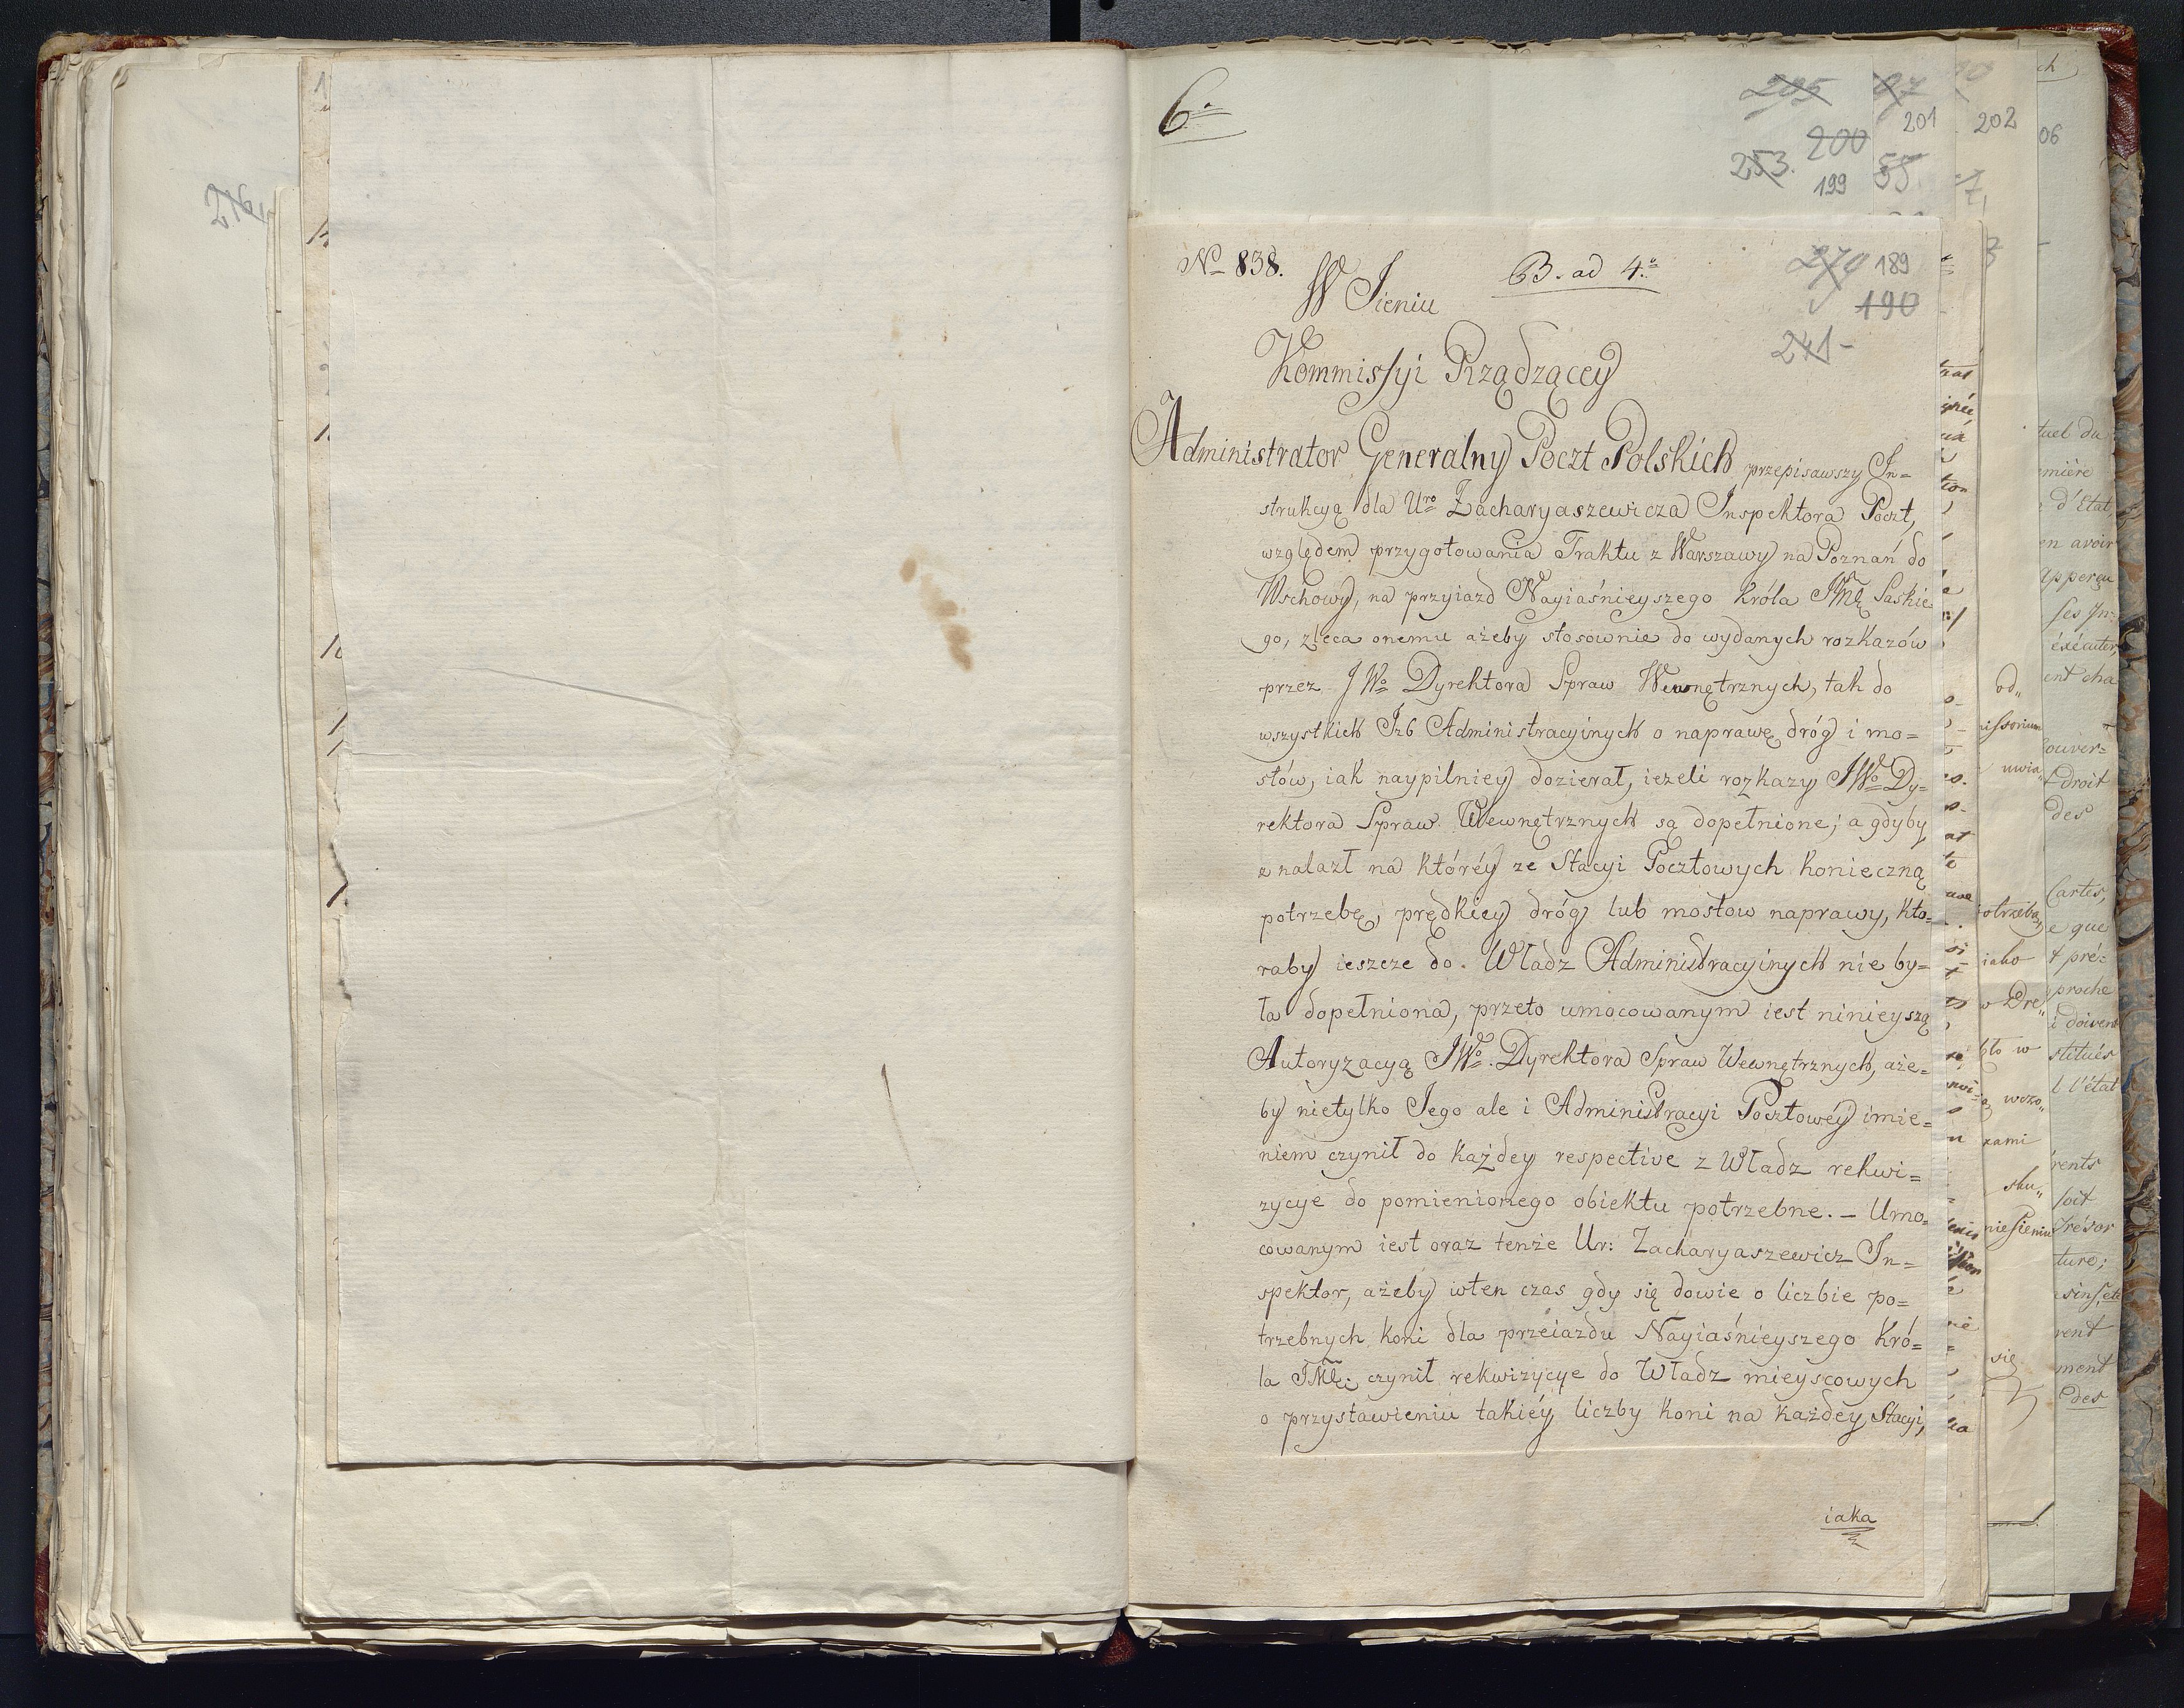 6
205 87
201 202 06
200
253. 55
199
216
No 838. B. ad 4o 270 189
W Jieniu 190
241-
Kommissyi Rządzącey
Administrator Generalny Poczt Polskich przepisawszy In=
strukcyą dla Uro Zacharyaszewicza Inspektora Poczt,
względem przygotowania Traktu z Warszawy na Poznań do
Wschowy, na przyiazd Nayiaśnieyszego Króla JMć Saskie
go, zleca onemu ażeby stosownie do wydanych rozkazów
przez JWo Dyrektora Spraw Wewnętrznych, tak do
wszystkich Izb Administracyinych o naprawę dróg i mo=
stów, iak naypilniey dozierał, ieżeli rozkazy JWo Dy=
rektora Spraw Wewnętrznych są dopełnione; a gdyby
znalazł na któréy ze Stacyi Pocztowych konieczną
potrzebę, prędkiey dróg lub mostow naprawy, kto=
raby ieszcze do Władz Administracyinych nie by=
ła dopełniona, przeto umocowanym iest ninieyszą
Autoryzacyą JWo. Dyrektora Spraw Wewnętrznych, aże=
by nietylko Jego ale i Administracyi Pocztowéy imie=
niem czynił do każdey respective z Władz rekwi=
zycye do pomienionego obiektu potrzebne. – Umo=
cowanym iest oraz tenże Ur: Zacharyaszewicz In=
spektor, ażeby wten czas gdy się dowie o liczbie po=
trzebnych koni dla przeiazdu Nayiaśnieyszego Kró=
la JMć; czynił rekwizycye do Władz mieyscowych
o przystawieniu takiéy liczby koni na każdey Stacyi,
iaka